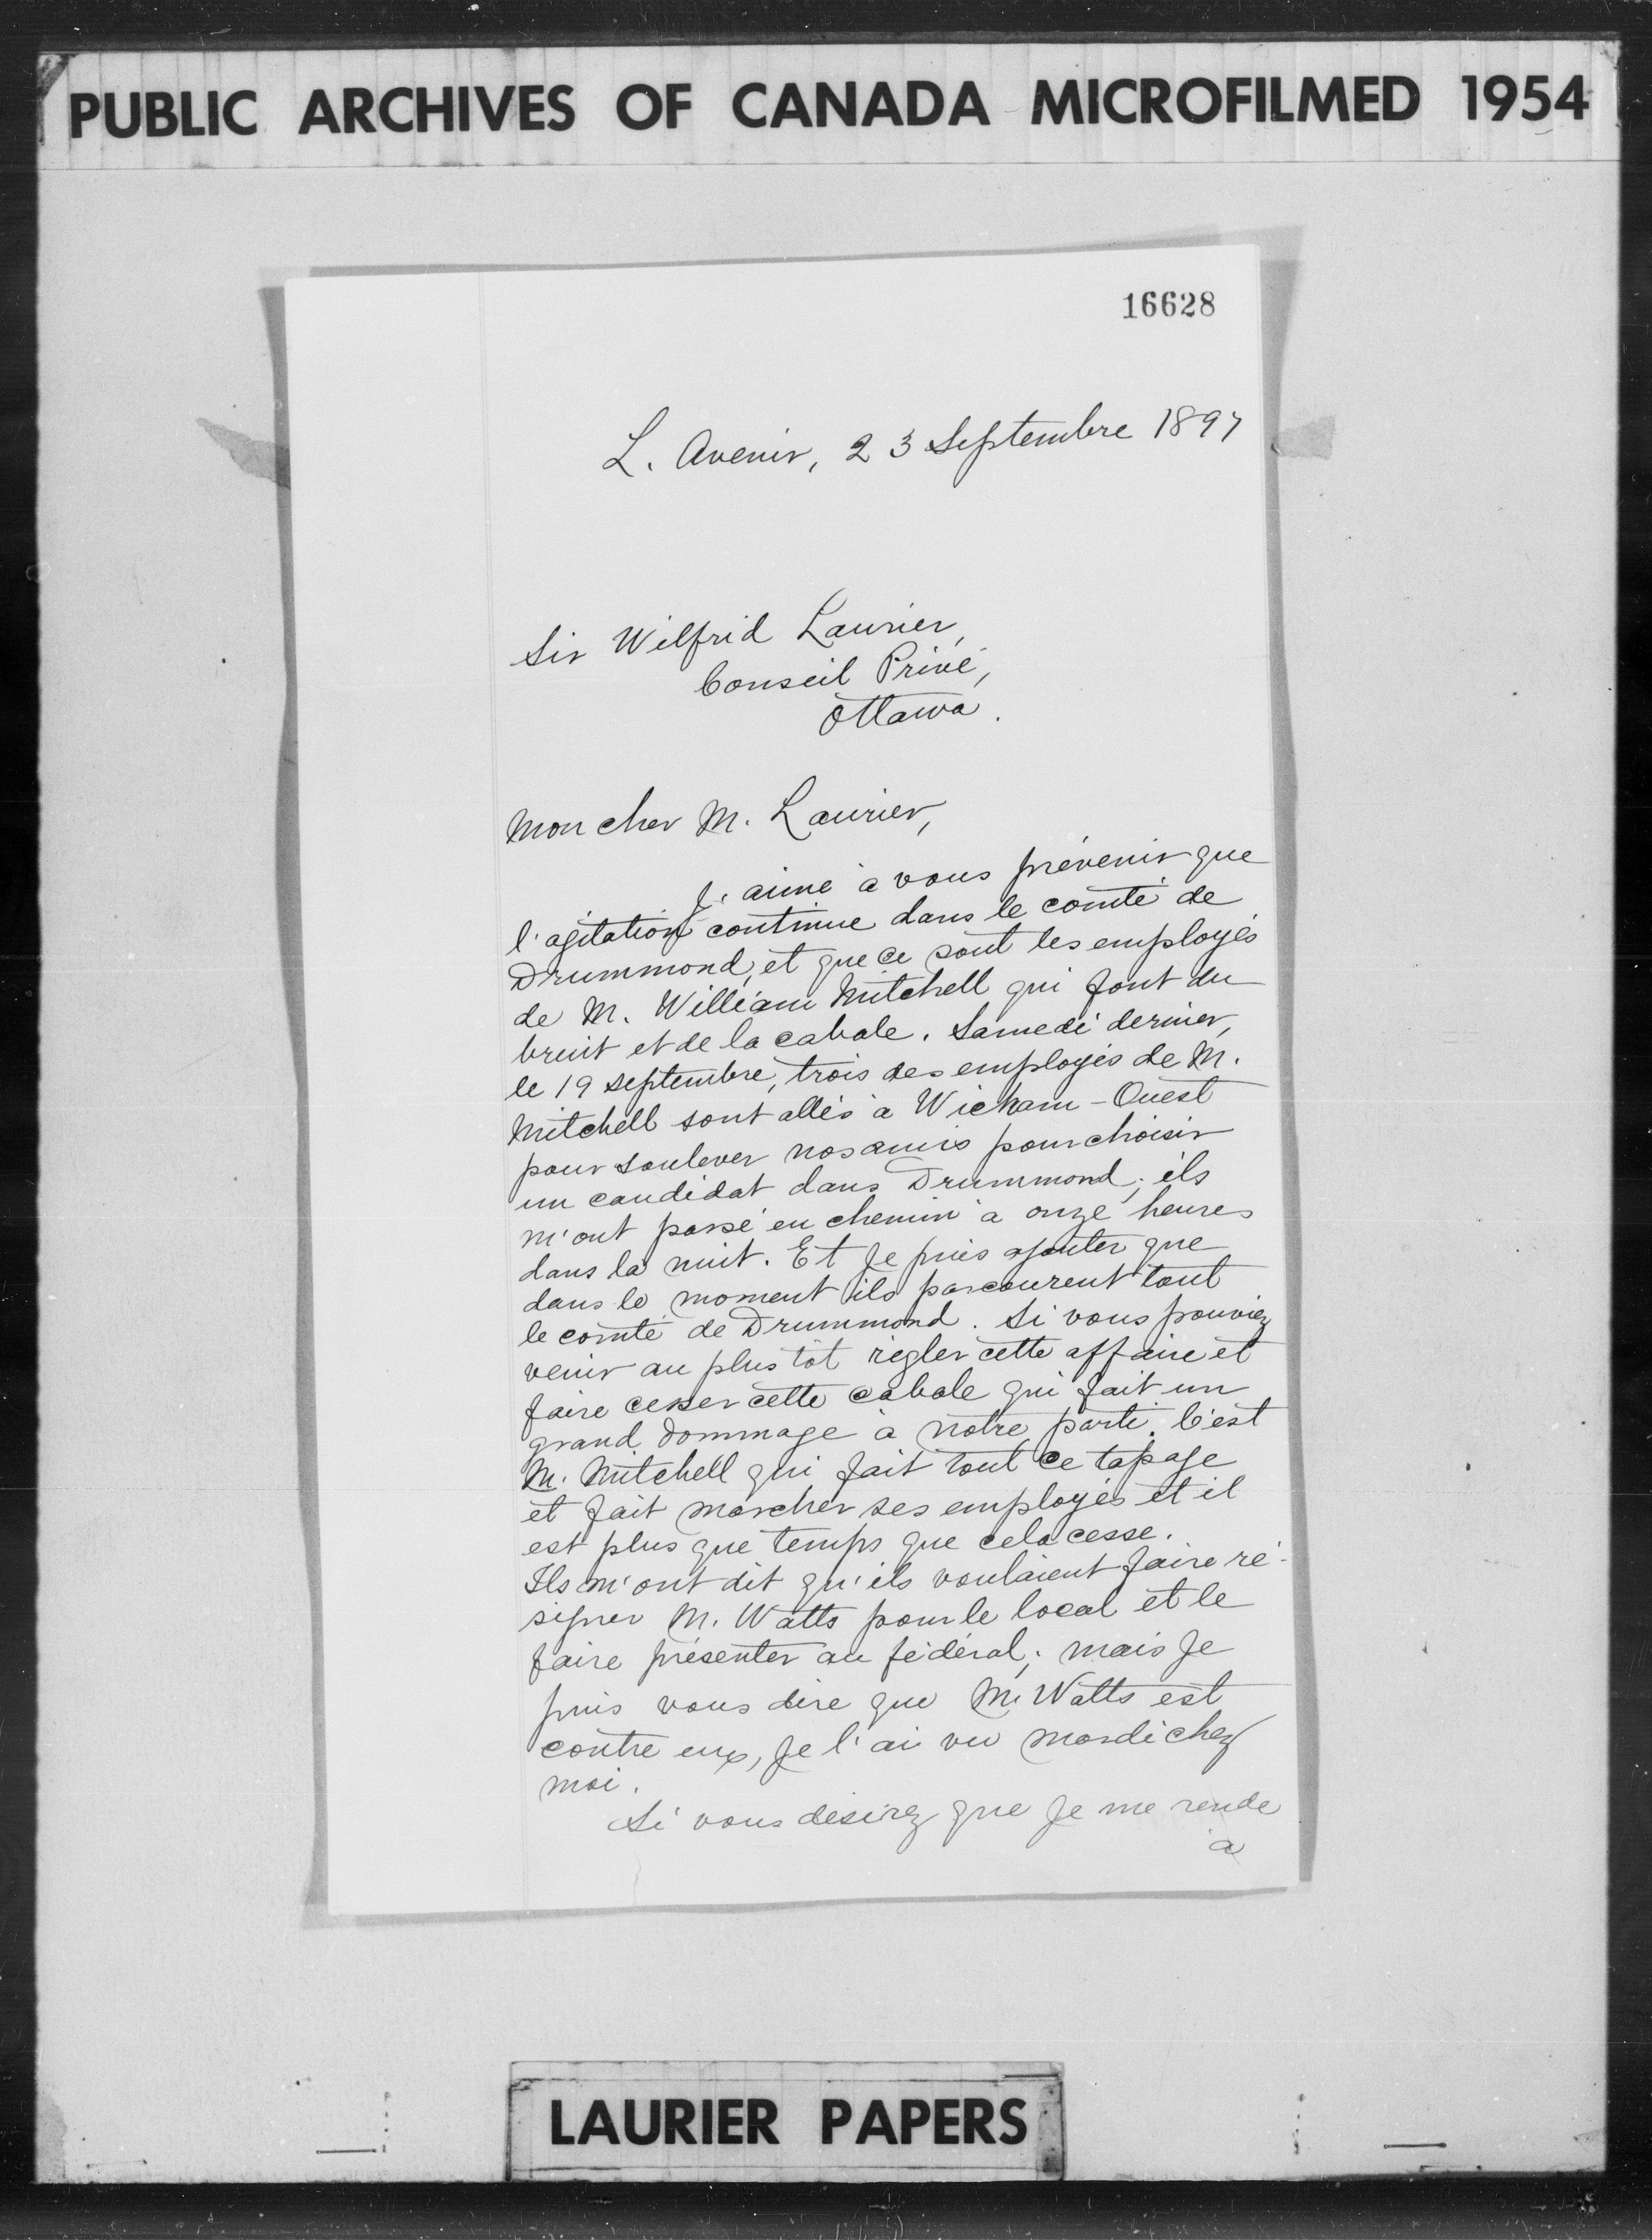 PUBLIC ARCHIVES OF CANADA MICROFILMED 1954
16628
L. Avenir, 23 Septembre 1897
Sir Wilfrid Laurier,
Conseil Privé,
Ottawa.
Mon cher M. Laurier,
J'aime à vous prévenir que
l'agitation continue dans le comté de
Drummond, et que ce sont les employés
de M. William Mitchell qui font du
bruit et de la cabale. Samedi dernier,
le 19 septembre, trois des employés de M.
Mitchell sont allés à Wickam-Ouest
pour soulever nos amis pour choisir
un candidat dans Drummond; ils
m'ont passé en chemin à onze heures
dans la nuit. Et je puis ajouter que
dans le moment ils parcourent tout
le comté de Drummond. Si vous pouviez
venir au plus tôt régler cette affaire et
faire cesser cette cabale qui fait un
grand dommage à notre parti. C'est
M. Mitchell qui fait tout ce tapage
et fait marcher ses employés et il
est plus que temps que cela cesse.
Ils m'ont dit qu'ils voulaient faire ré-
signer M. Watts pour le local et le
faire présenter au fédéral; mais je
puis vous dire que M. Watts est
contre eux, je l'ai vu mardi chez
moi.
Si vous désirez que je me rende
à
LAURIER PAPERS